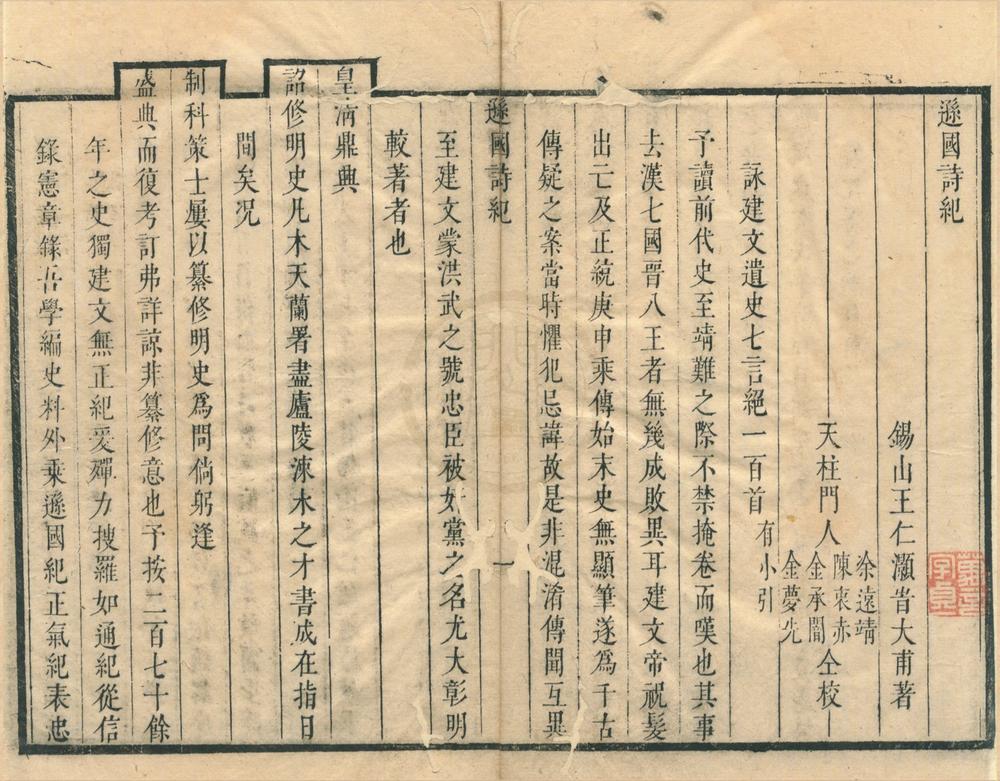 遜國詩紀
錫山王仁灝㫖大甫著
余遠靖
陳衷赤
天柱門人金承閶仝校
金夢先
詠建文遺史七言絕一百首有小引
予讀前代史至靖難之際不禁掩卷而嘆也其事
去漢七國晉八王者無幾成敗異耳建文帝祝髮
出亡及正統庚申乘傳始末史無顯筆遂爲千古
傳疑之案當時懼犯忌諱故是非混淆傳聞互異
遜國詩紀
一
至建文蒙洪武之號忠臣被奸黨之名尤大彰明
較著者也
皇清鼎典
詔修明史凡木天蘭署盡廬陵涑水之才書成在指日
間矣况
制科策士屢以纂修明史爲問倘躬逢
盛典而復考訂弗詳諒非纂修意也予按二百七十餘
年之史獨建文無正紀爰殫力搜羅如通紀從信
錄憲章錄吾學編史料外乗遜國紀正氣紀表忠